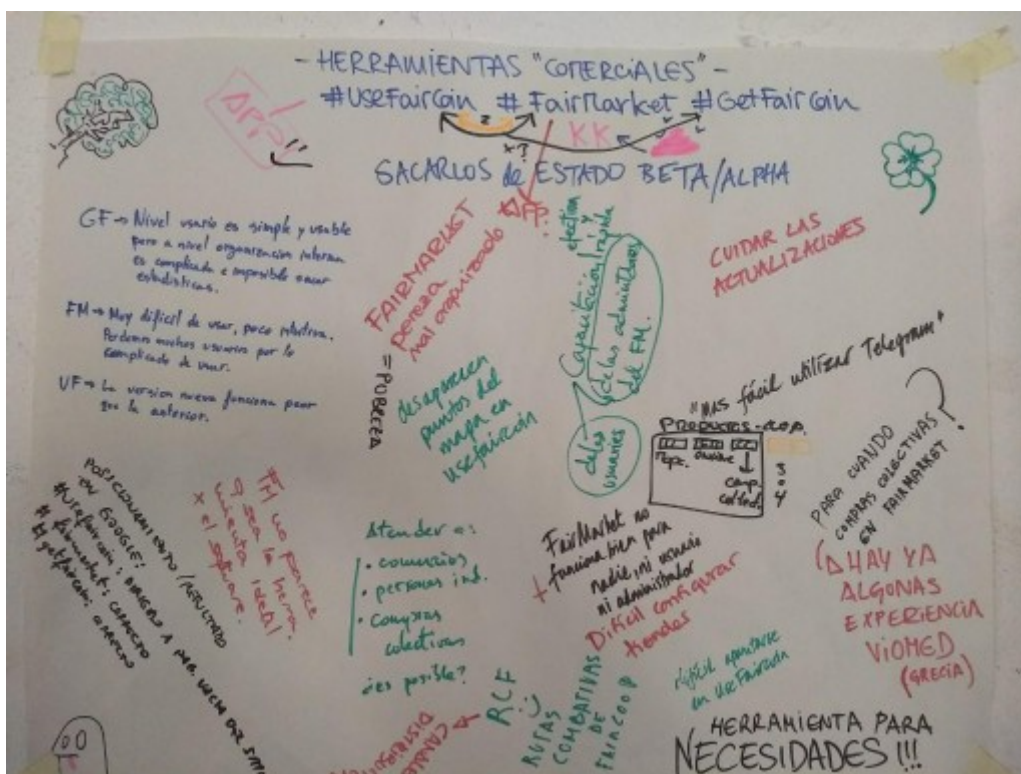 - HERRAMIENTAS "COMERCIALES" -
#UseFairCoin # FairMarket #GetFairCoin
2
x?
KK
APP!
!!
SACARLOS de ESTADO BETA/ALPHA
APP?
GF → Nivel usario es simple y usable
pero a nivel organización interna
es complicada e imposible sacar
estadísticas.
FM → Muy difícil de usar, poco intuitiva.
Perdemos muchos usuarios por lo
complicado de usar.
UF → La version nueva funciona peor
que la anterior.
FAIRMARKET
pereza
mal organizado
= POBREZA
desaparecen
puntos del
mapa en
usefaircoin
Capacitación efectiva y rápida
de las
del FM.
de los
usuaries
CUIDAR LAS
ACTUALIZACIONES
"Mas fácil utilizar Telegram"
PRODUCTOS
comp.
colect.
3
0
4
PARA CUANDO
COMPRAS COLECTIVAS
EN FAIRMARKET?
(A HAY YA
ALGONAS
EXPERIENCIA
VIOMED
(GRECIA)
POSICIONAMIENTO/RESULTADO
EN GOOGLE:
#usefaircoin:
# fairmarket: CORRECTO
# getfaircoin: CORRECTO
FM no parece
q sea la herra-
mienta ideal
x el software.
Atender a:
• comercios
• personas ind.
• compras
colectivas
¿es posible?
FairMarket no
+ funciona bien para
nadie, ni usuario
ni administrador
Difícil configurar
tiendas
difícil apuntarse
en UseFaircoin
RCF
RUTAS
COMBATIVAS
DE
FAIRCOOP
HERRAMIENTA PARA
NECESIDADES !!!